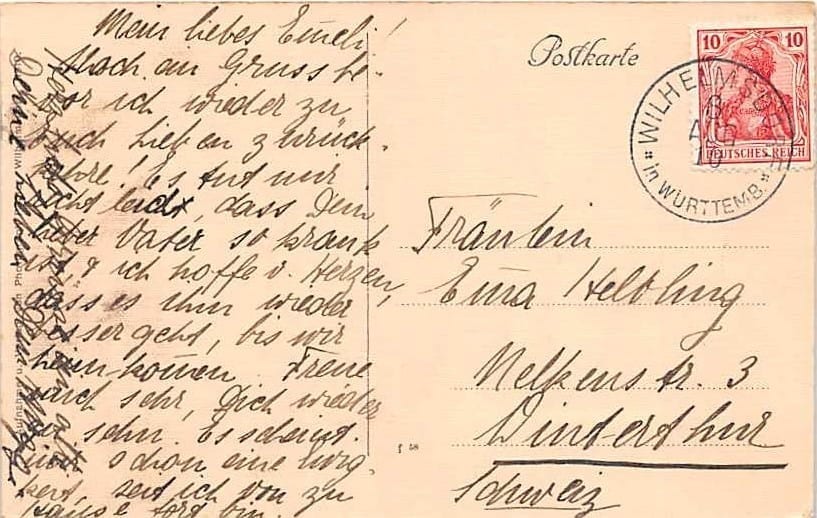 Mein liebes Emeli!
Noch ein Gruss be-
vor ich wieder zu
Euch lieben zurück-
kehre! Es tut mir
recht leid, dass Dein
lieber Vater so krank
ist, & ich hoffe v. Herzen,
dass es ihm wieder
besser geht, bis wir
heim kom̄en. Freue
mich sehr, Dich wieder
zu sehn. Es scheint
mir schon eine Ewig-
keit, seit ich von zu
Hause fort bin.
Deine
Postkarte
10 10
DEUTSCHES REICH
WILHELMSDORF
8
AUG
10
in WÜRTTEMB.
Fräulein
Emma Helbling
Nelkenstr. 3
Winterthur
Schweiz